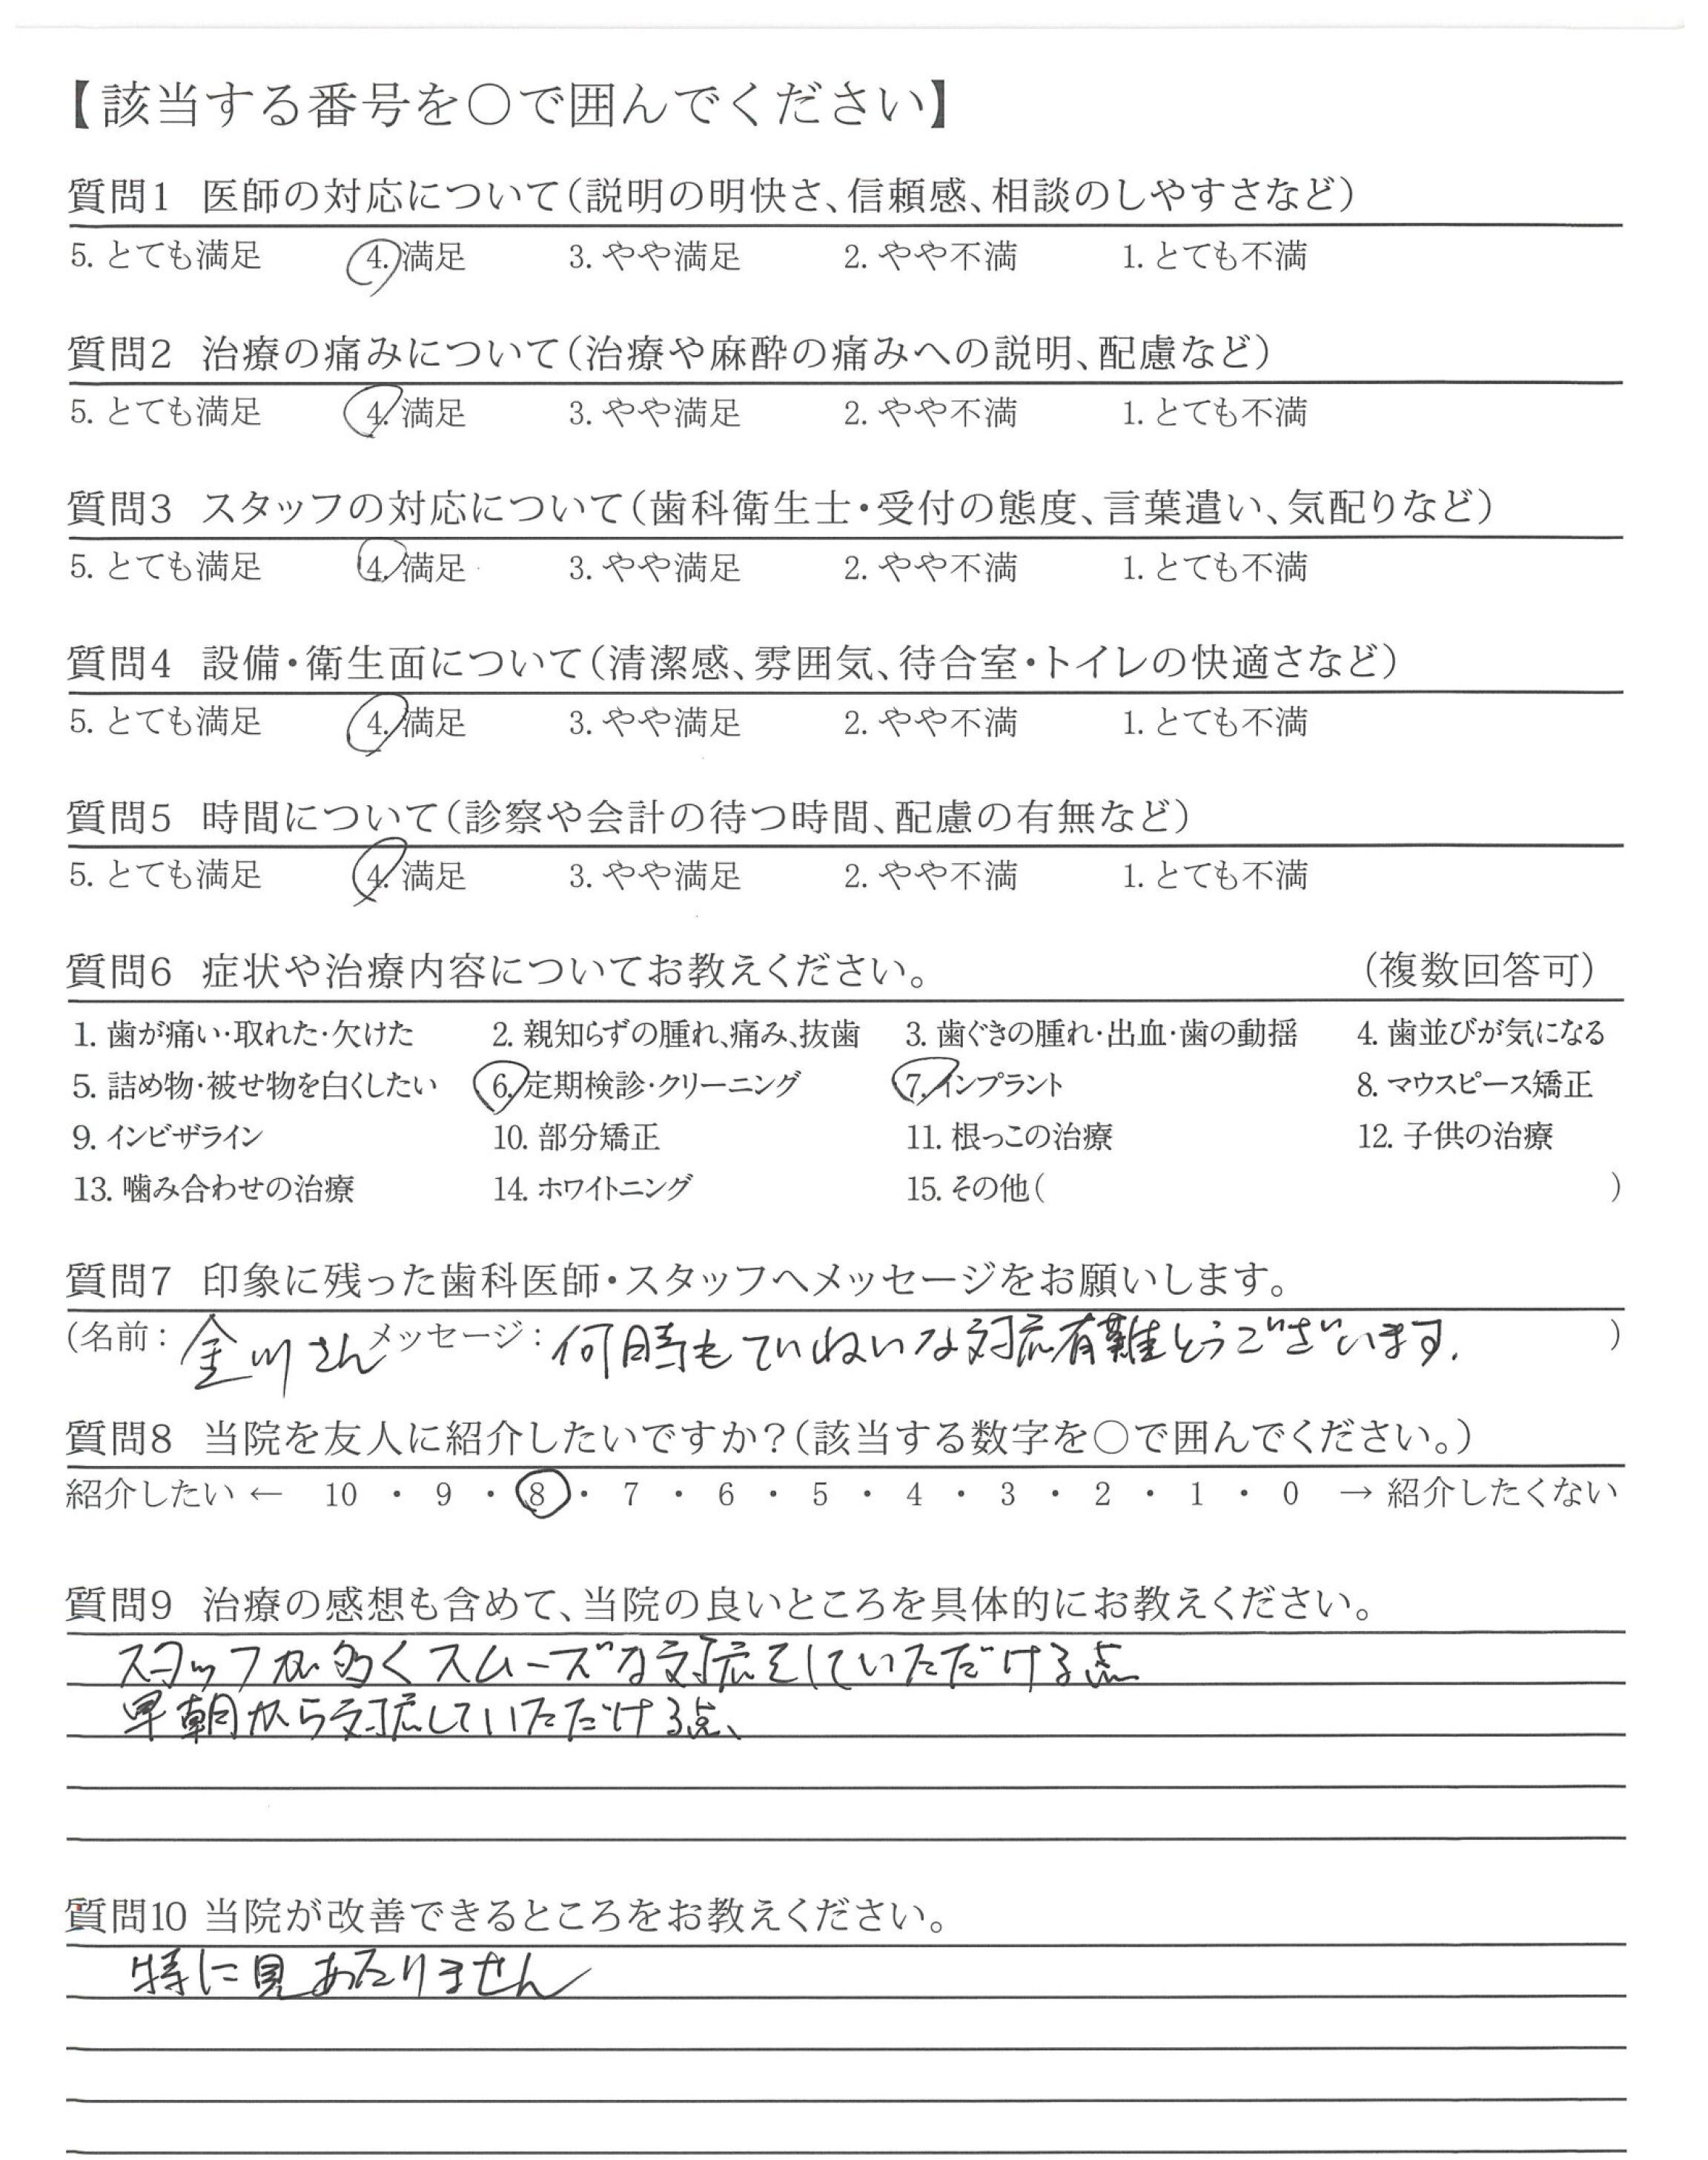 【該当する番号を○で囲んでください】
質問1 医師の対応について(説明の明快さ、信頼感、相談のしやすさなど)
5. とても満足 4. 満足 3. やや満足 2. やや不満 1. とても不満
質問2 治療の痛みについて(治療や麻酔の痛みへの説明、配慮など)
5. とても満足 4. 満足 3. やや満足 2. やや不満 1. とても不満
質問3 スタッフの対応について(歯科衛生士・受付の態度、言葉遣い、気配りなど)
5. とても満足 4. 満足 3. やや満足 2. やや不満 1. とても不満
質問4 設備・衛生面について(清潔感、雰囲気、待合室・トイレの快適さなど)
5. とても満足 4. 満足 3. やや満足 2. やや不満 1. とても不満
質問5 時間について(診察や会計の待つ時間、配慮の有無など)
5. とても満足 4. 満足 3. やや満足 2. やや不満 1. とても不満
質問6 症状や治療内容についてお教えください。 (複数回答可)
1. 歯が痛い・取れた・欠けた 2. 親知らずの腫れ、痛み、抜歯 3. 歯ぐきの腫れ・出血・歯の動揺 4. 歯並びが気になる
5. 詰め物・被せ物を白くしたい 6. 定期検診・クリーニング 7. インプラント 8. マウスピース矯正
9. インビザライン 10. 部分矯正 11. 根っこの治療 12. 子供の治療
13. 噛み合わせの治療 14. ホワイトニング 15. その他( )
質問7 印象に残った歯科医師・スタッフへメッセージをお願いします。
(名前: 金川さん メッセージ: 何時もていねいな対応有難とうございます. )
質問8 当院を友人に紹介したいですか?(該当する数字を○で囲んでください。)
紹介したい ← 10 ・ 9 ・ 8 ・ 7 ・ 6 ・ 5 ・ 4 ・ 3 ・ 2 ・ 1 ・ 0 → 紹介したくない
質問9 治療の感想も含めて、当院の良いところを具体的にお教えください。
スタッフが多くスムーズな対応をしていただける点
早朝から対応していただける点、
質問10 当院が改善できるところをお教えください。
特に見あたりません